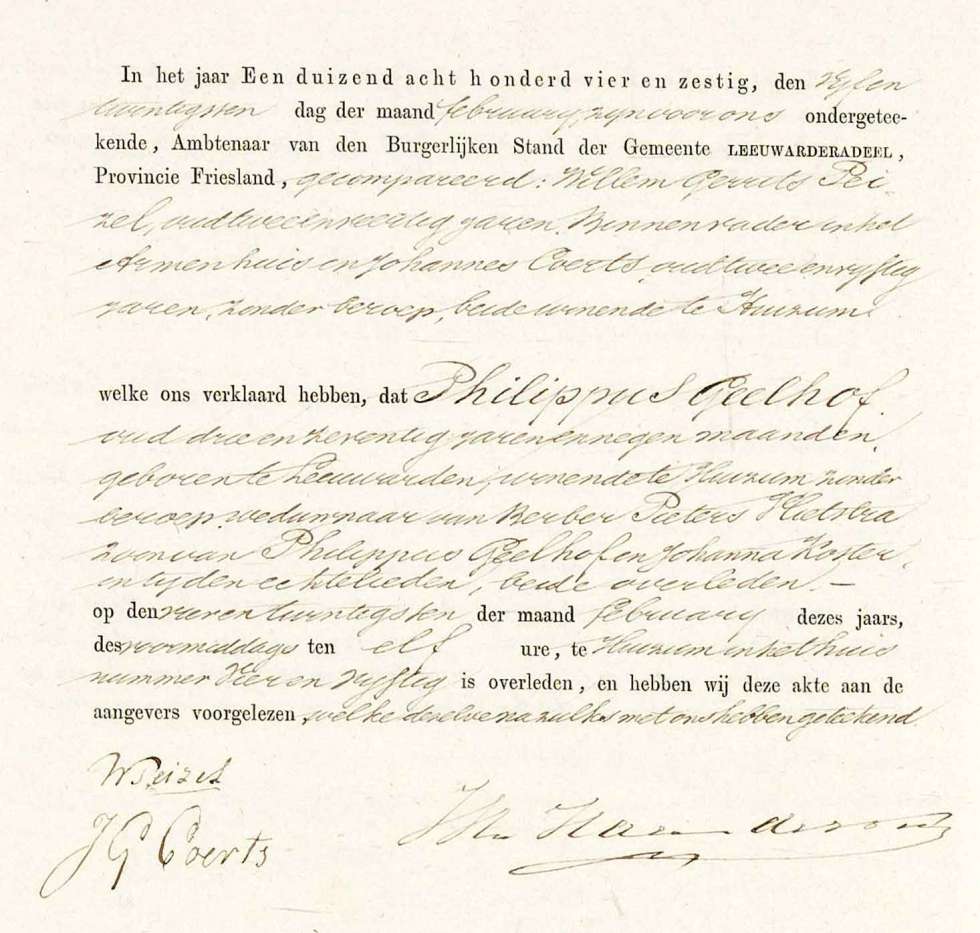 In het jaar Een duizend acht honderd vier en zestig, den Vyf en
twintigsten dag der maand february, zyn voor ons ondergetee-
kende, Ambtenaar van den Burgerlijken Stand der Gemeente LEEUWARDERADEEL,
Provincie Friesland, gecompareerd: Willem Gerrits Pei-
zel, oud twee en veertig jaren, Binnenvader in het
Armenhuis en Johannes Coerts, oud twee en vyftig
jaren, zonder beroep, beide wonende te Huizum
welke ons verklaard hebben, dat Philippus Geelhof
oud drie en zeventig jaren en negen maanden,
geboren te Leeuwarden, wonende te Huizum zonder
beroep, weduwnaar van Berber Pieters Hietstra
zoon van Philippus Geelhof en Johanna Koster,
in tyden echtelieden, beide overleden. —
op den vier en twintigsten der maand february dezes jaars,
des voormiddags ten elf ure, te Huizum in het huis
nummer Vier en Vyftig is overleden, en hebben wij deze akte aan de
aangevers voorgelezen, welke dezelve nazulks met ons hebben geteekend.
W Peizel
J G Coerts